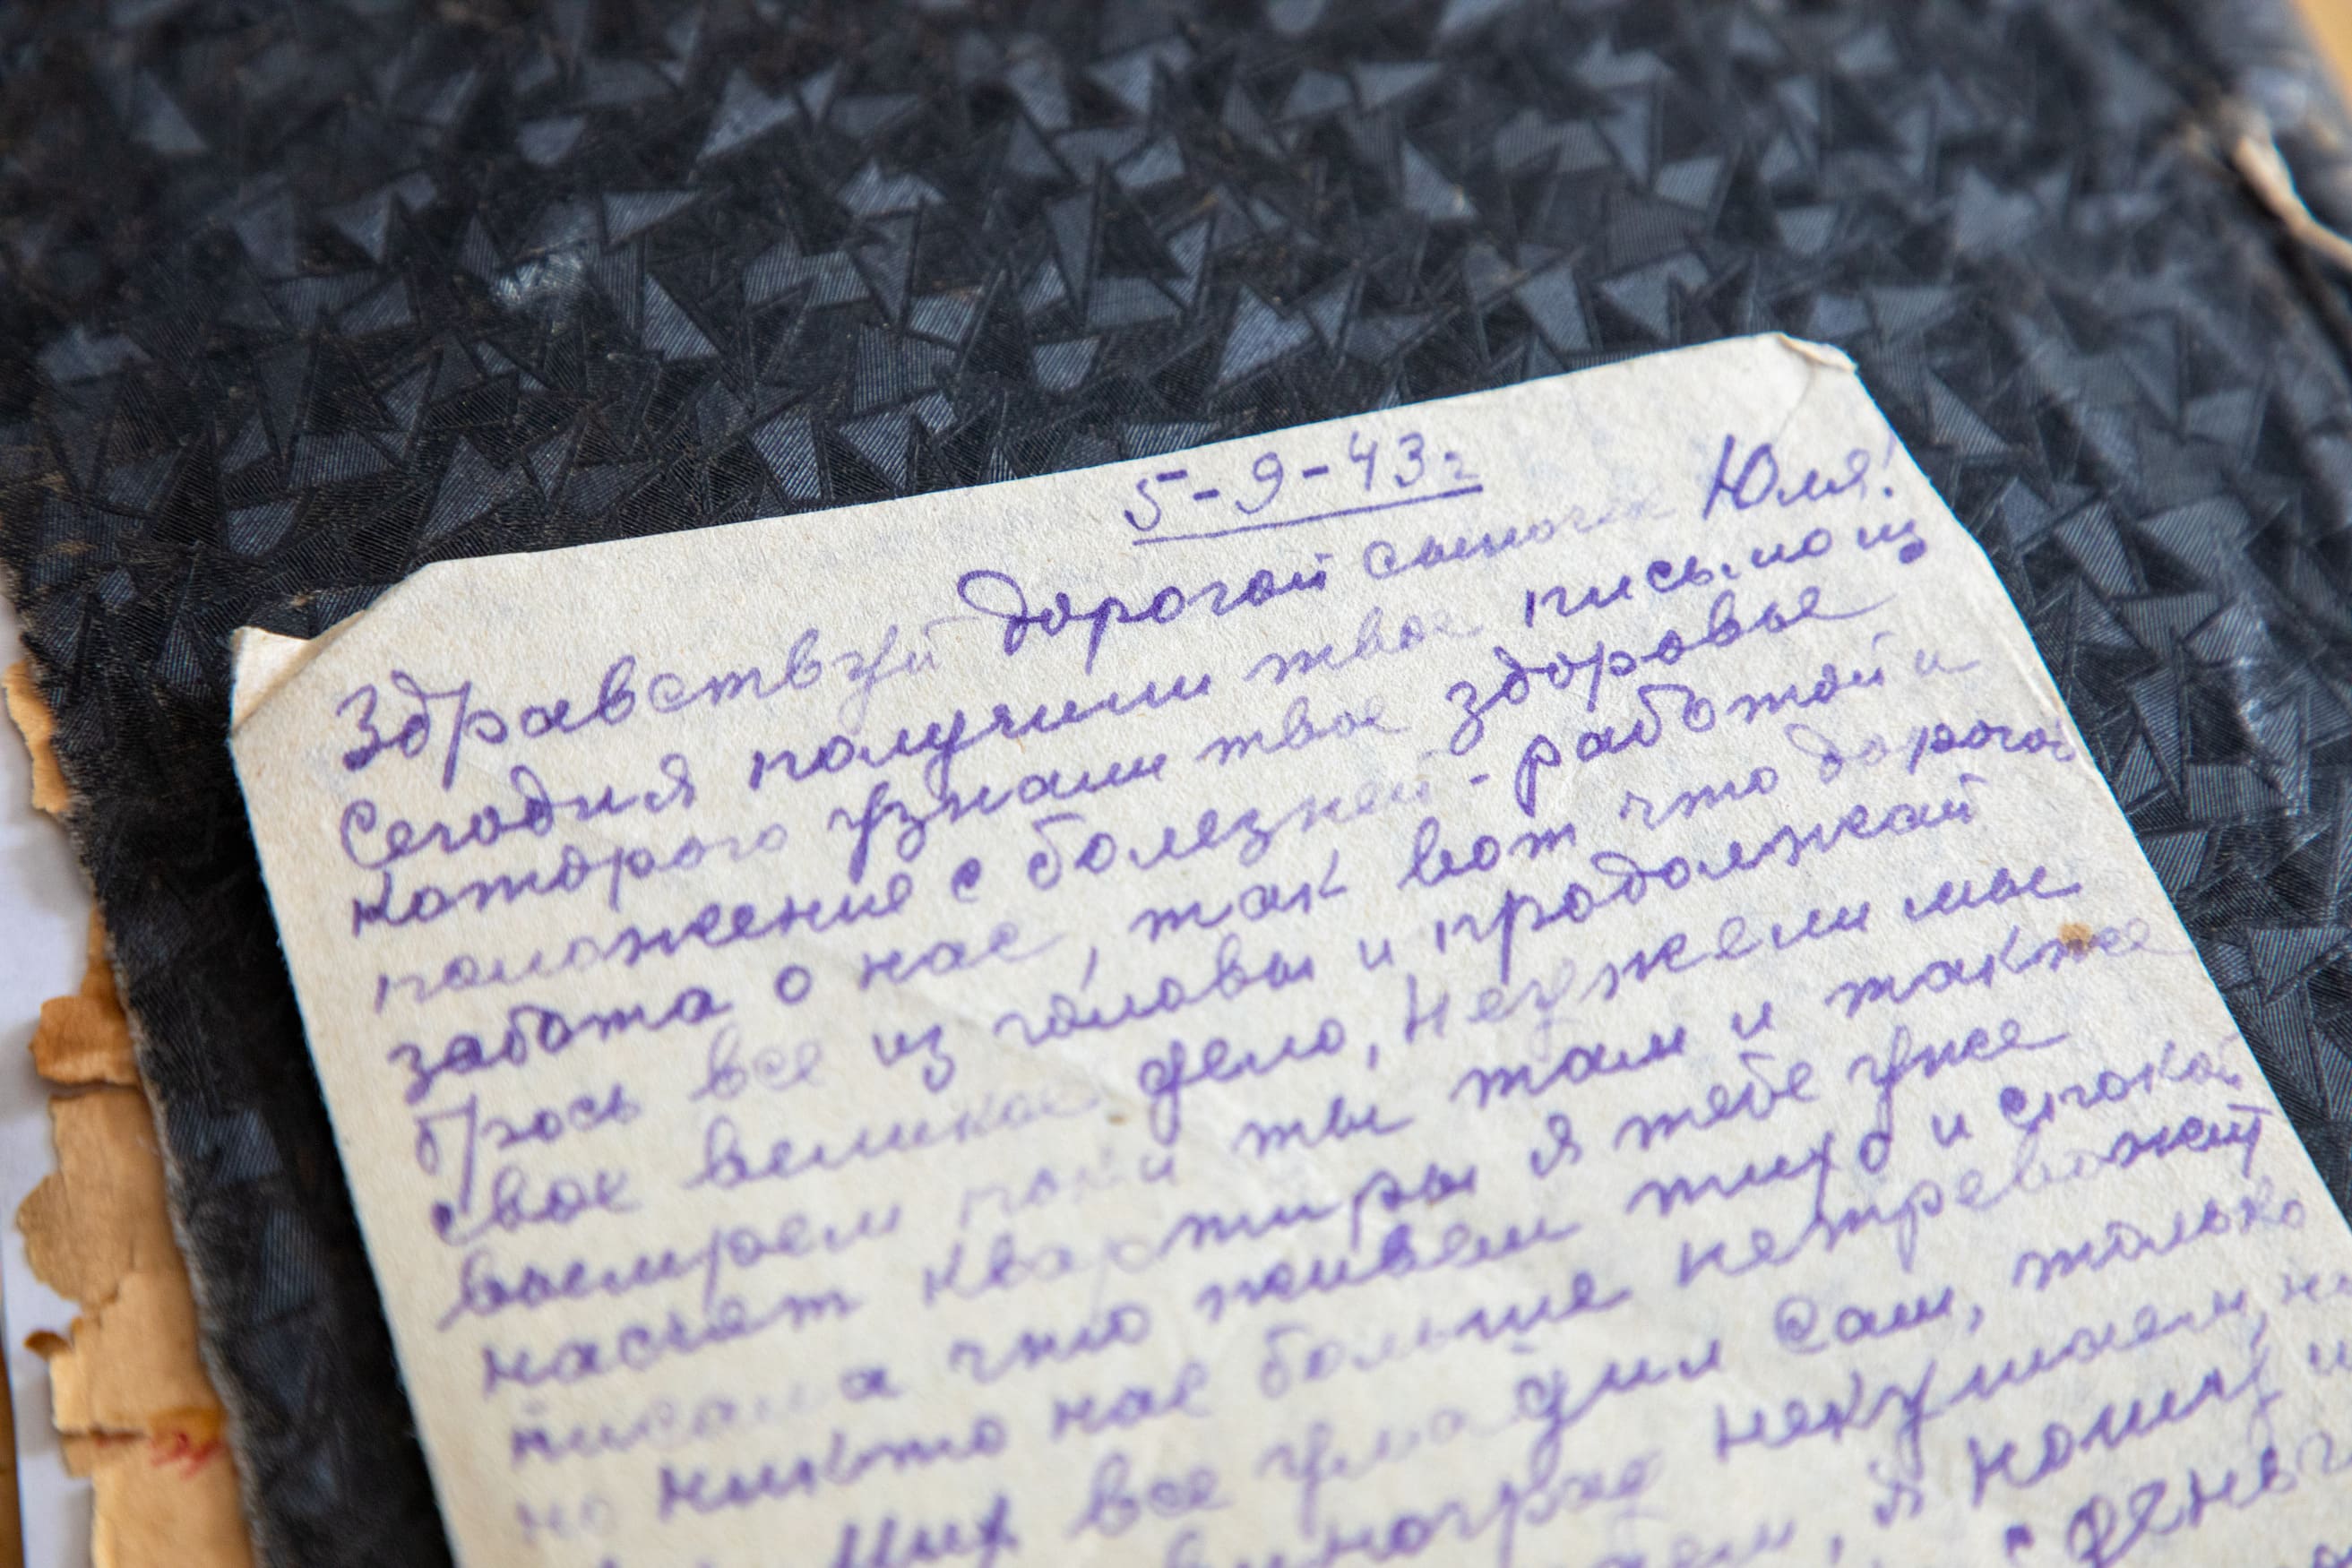 5-9-43г
Здравствуй дорогой сыночек Юля!
Сегодня получили твое письмо из
которого узнали твое здоровье
положение с болезней - работой и
забота о нас, так вот что дорогой
брось все из головы и продолжай
свое великое дело, Неужели мы
вымрем пока ты там и также
насчет квартиры я тебе уже
писала что живем тихо и спокой
но никто нас больше нетревожит
Мих все сам, только
некушаем,
Я ношу
день